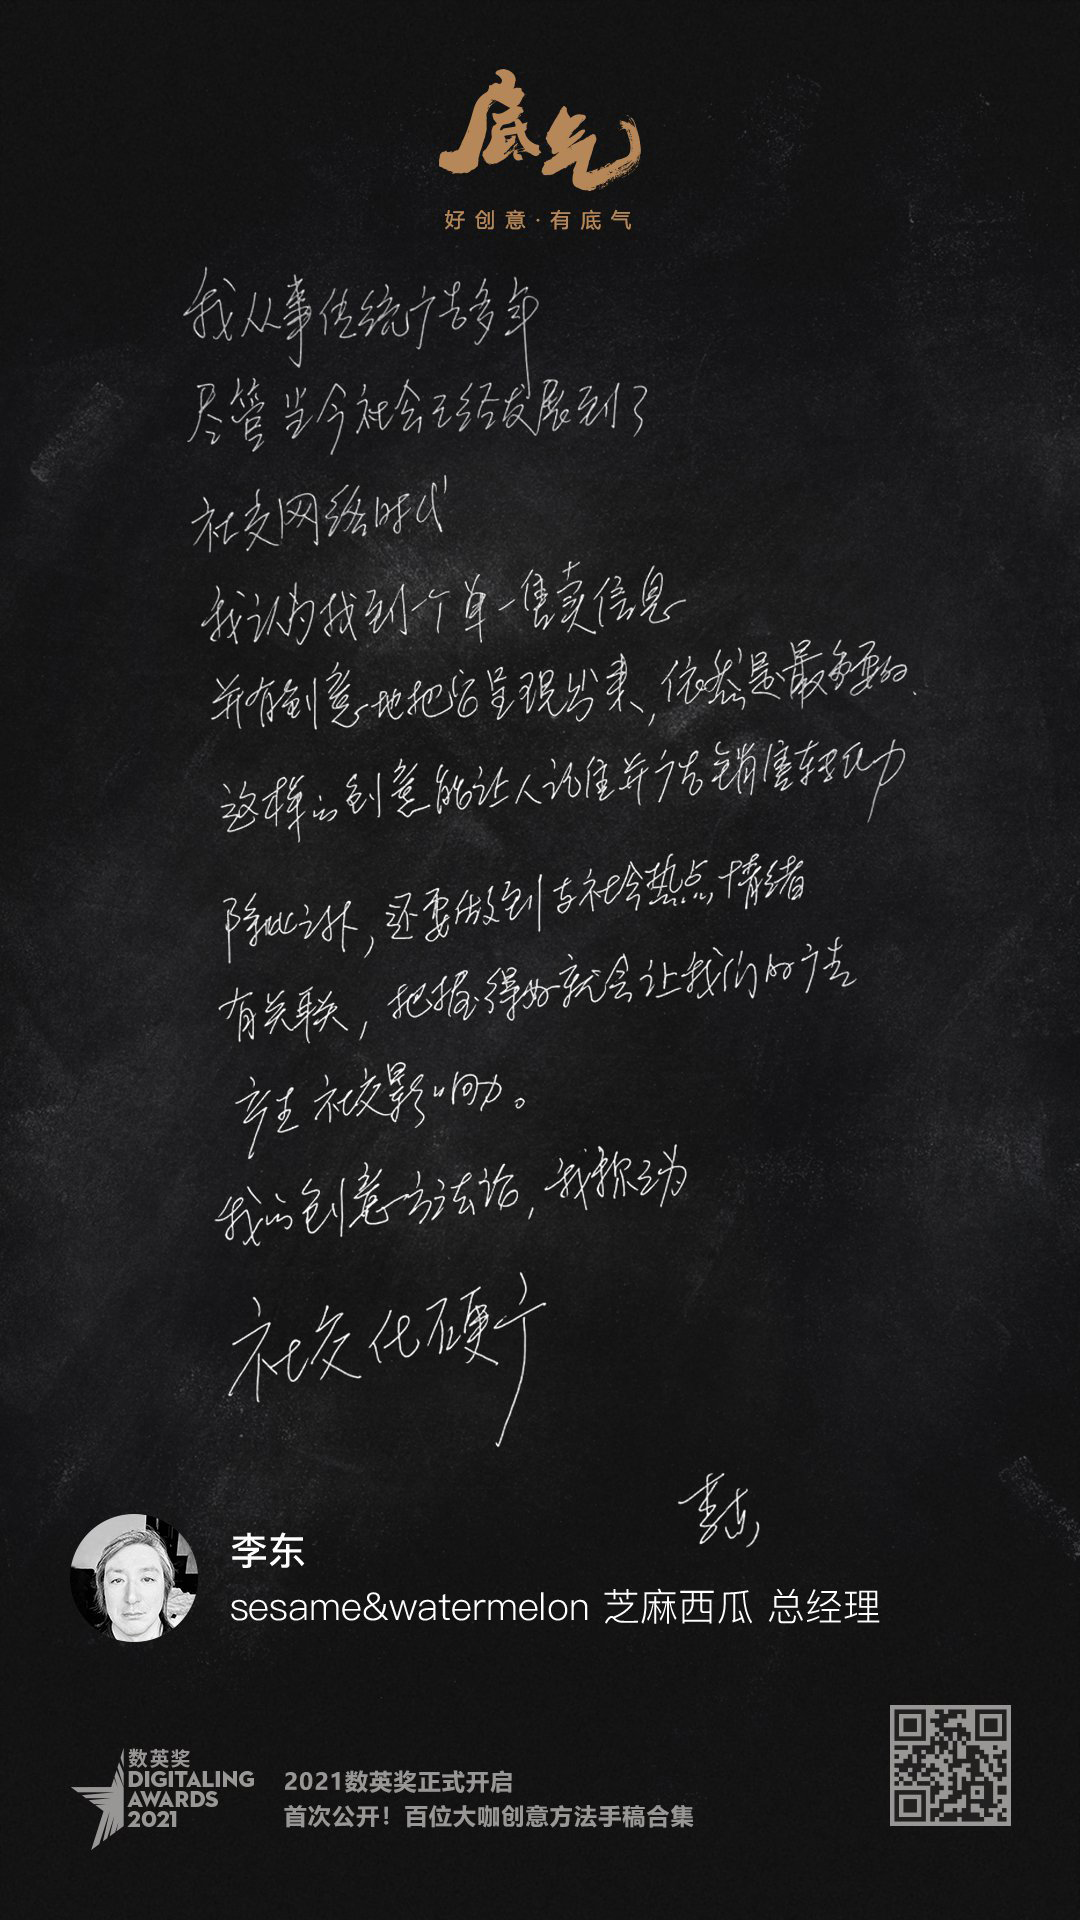 底气
好创意·有底气
我从事传统广告多年
尽管当今社会已经发展到了
社交网络时代
我认为找到一个单一售卖信息
并有创意地把它呈现出来,依然是最重要的.
这样的创意能让人记住并广告销售转化力
除此之外,还要做到与社会热点情绪
有关联,把握得好就会让我们的广告
产生社交影响力。
我的创意方法论,我称之为
社交化硬广
李东
李东
sesame&watermelon 芝麻西瓜 总经理
数英奖
DIGITALING
AWARDS
2021
2021数英奖正式开启
首次公开！百位大咖创意方法手稿合集